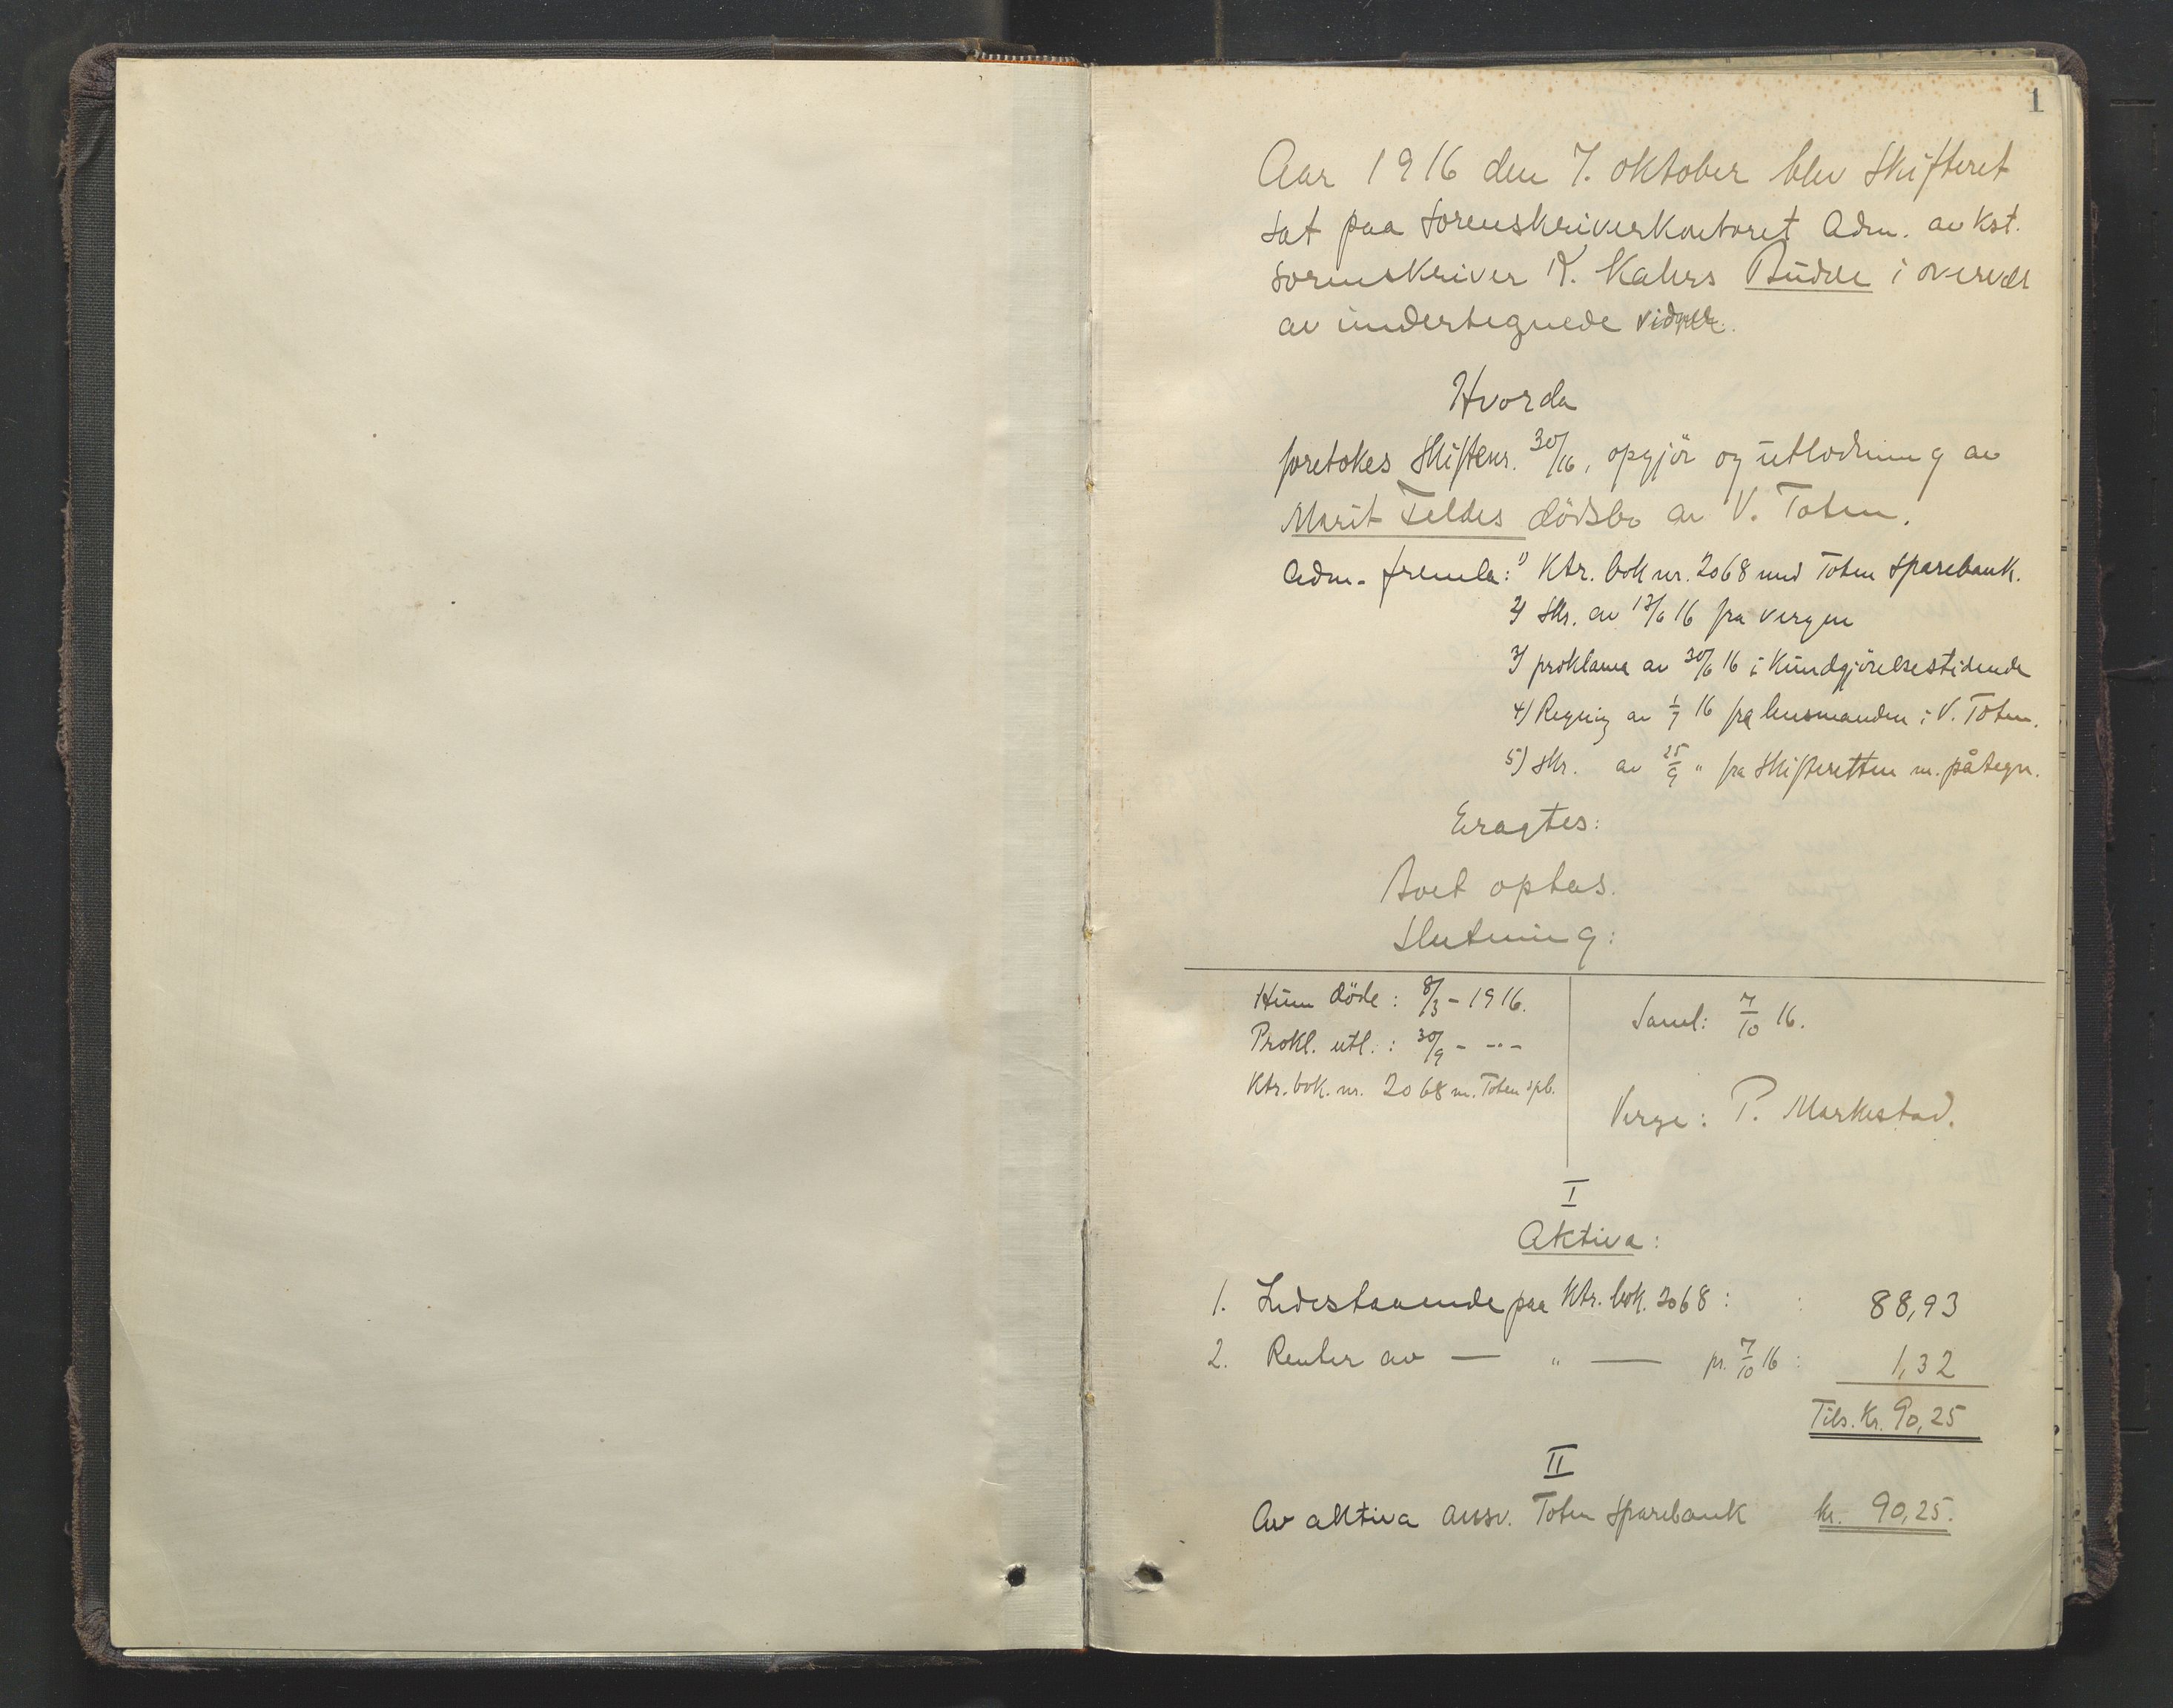 1
Aar 1916 den 7. oktober blev Skifteret
sat paa sorenskriverkontoret Adm. av kst.
sorenskriver K. Kahrs Budde i overvær
av undertegnede vidner.
Hvorda
foretokes Skiftenr. 30/16, opgjör og utlodning av
Marit Feldes dödsbo av V. Toten.
Adm. fremla: 1) Ktr. bok nr. 2068 med Toten Sparebank.
2) Skr. av 13/6 16 fra vergen
3) proklama av 30/6 16 i Kundgjörelsestidende
4) Regning av 1/7 16 fra lensmanden i V. Toten.
5) Skr. av 25/9 " fra Skifteretten m. påtegn.
Eragtes:
Boet optas.
Slutning:
Hun döde: 8/3 - 1916.
Prokl. utl.: 30/9 - -"-
Ktr. bok. nr. 2068 m. Toten spb.
Saml: 7/10 16.
Verge: P. Markestad.
I
Aktiva:
1. Indestaaende paa Ktr. bok. 2068: 88,93
2. Renter av — " — pr. 7/10 16: 1,32
Tils. Kr. 90,25
II
Av aktiva ansv. Toten Sparebank kr. 90,25.